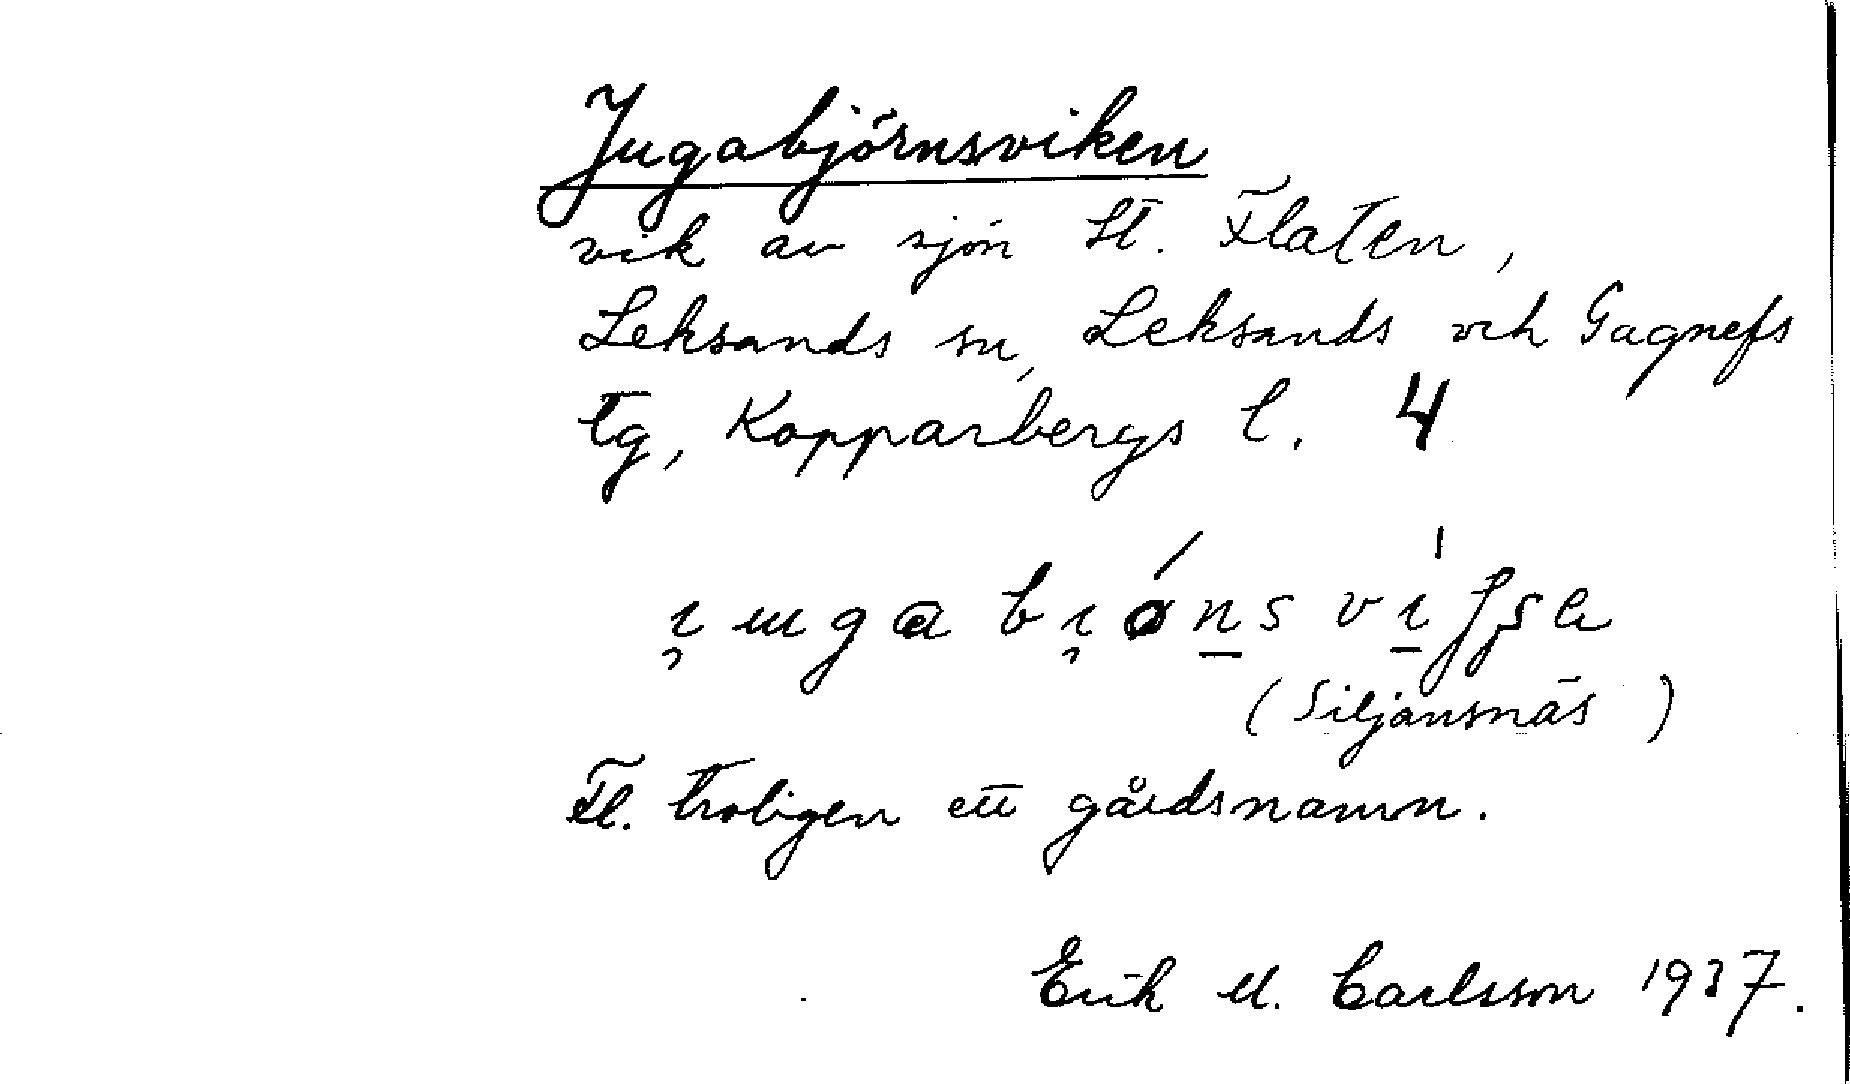 Jugabjörnsviken
vik av sjön St. Flaten,
Leksands sn, Leksands och Gagnefs
tg, Kopparbergs l. 4
(Siljansnäs)
Fl. troligen ett gårdsnamn.
Erik M. Carlsson 1937.